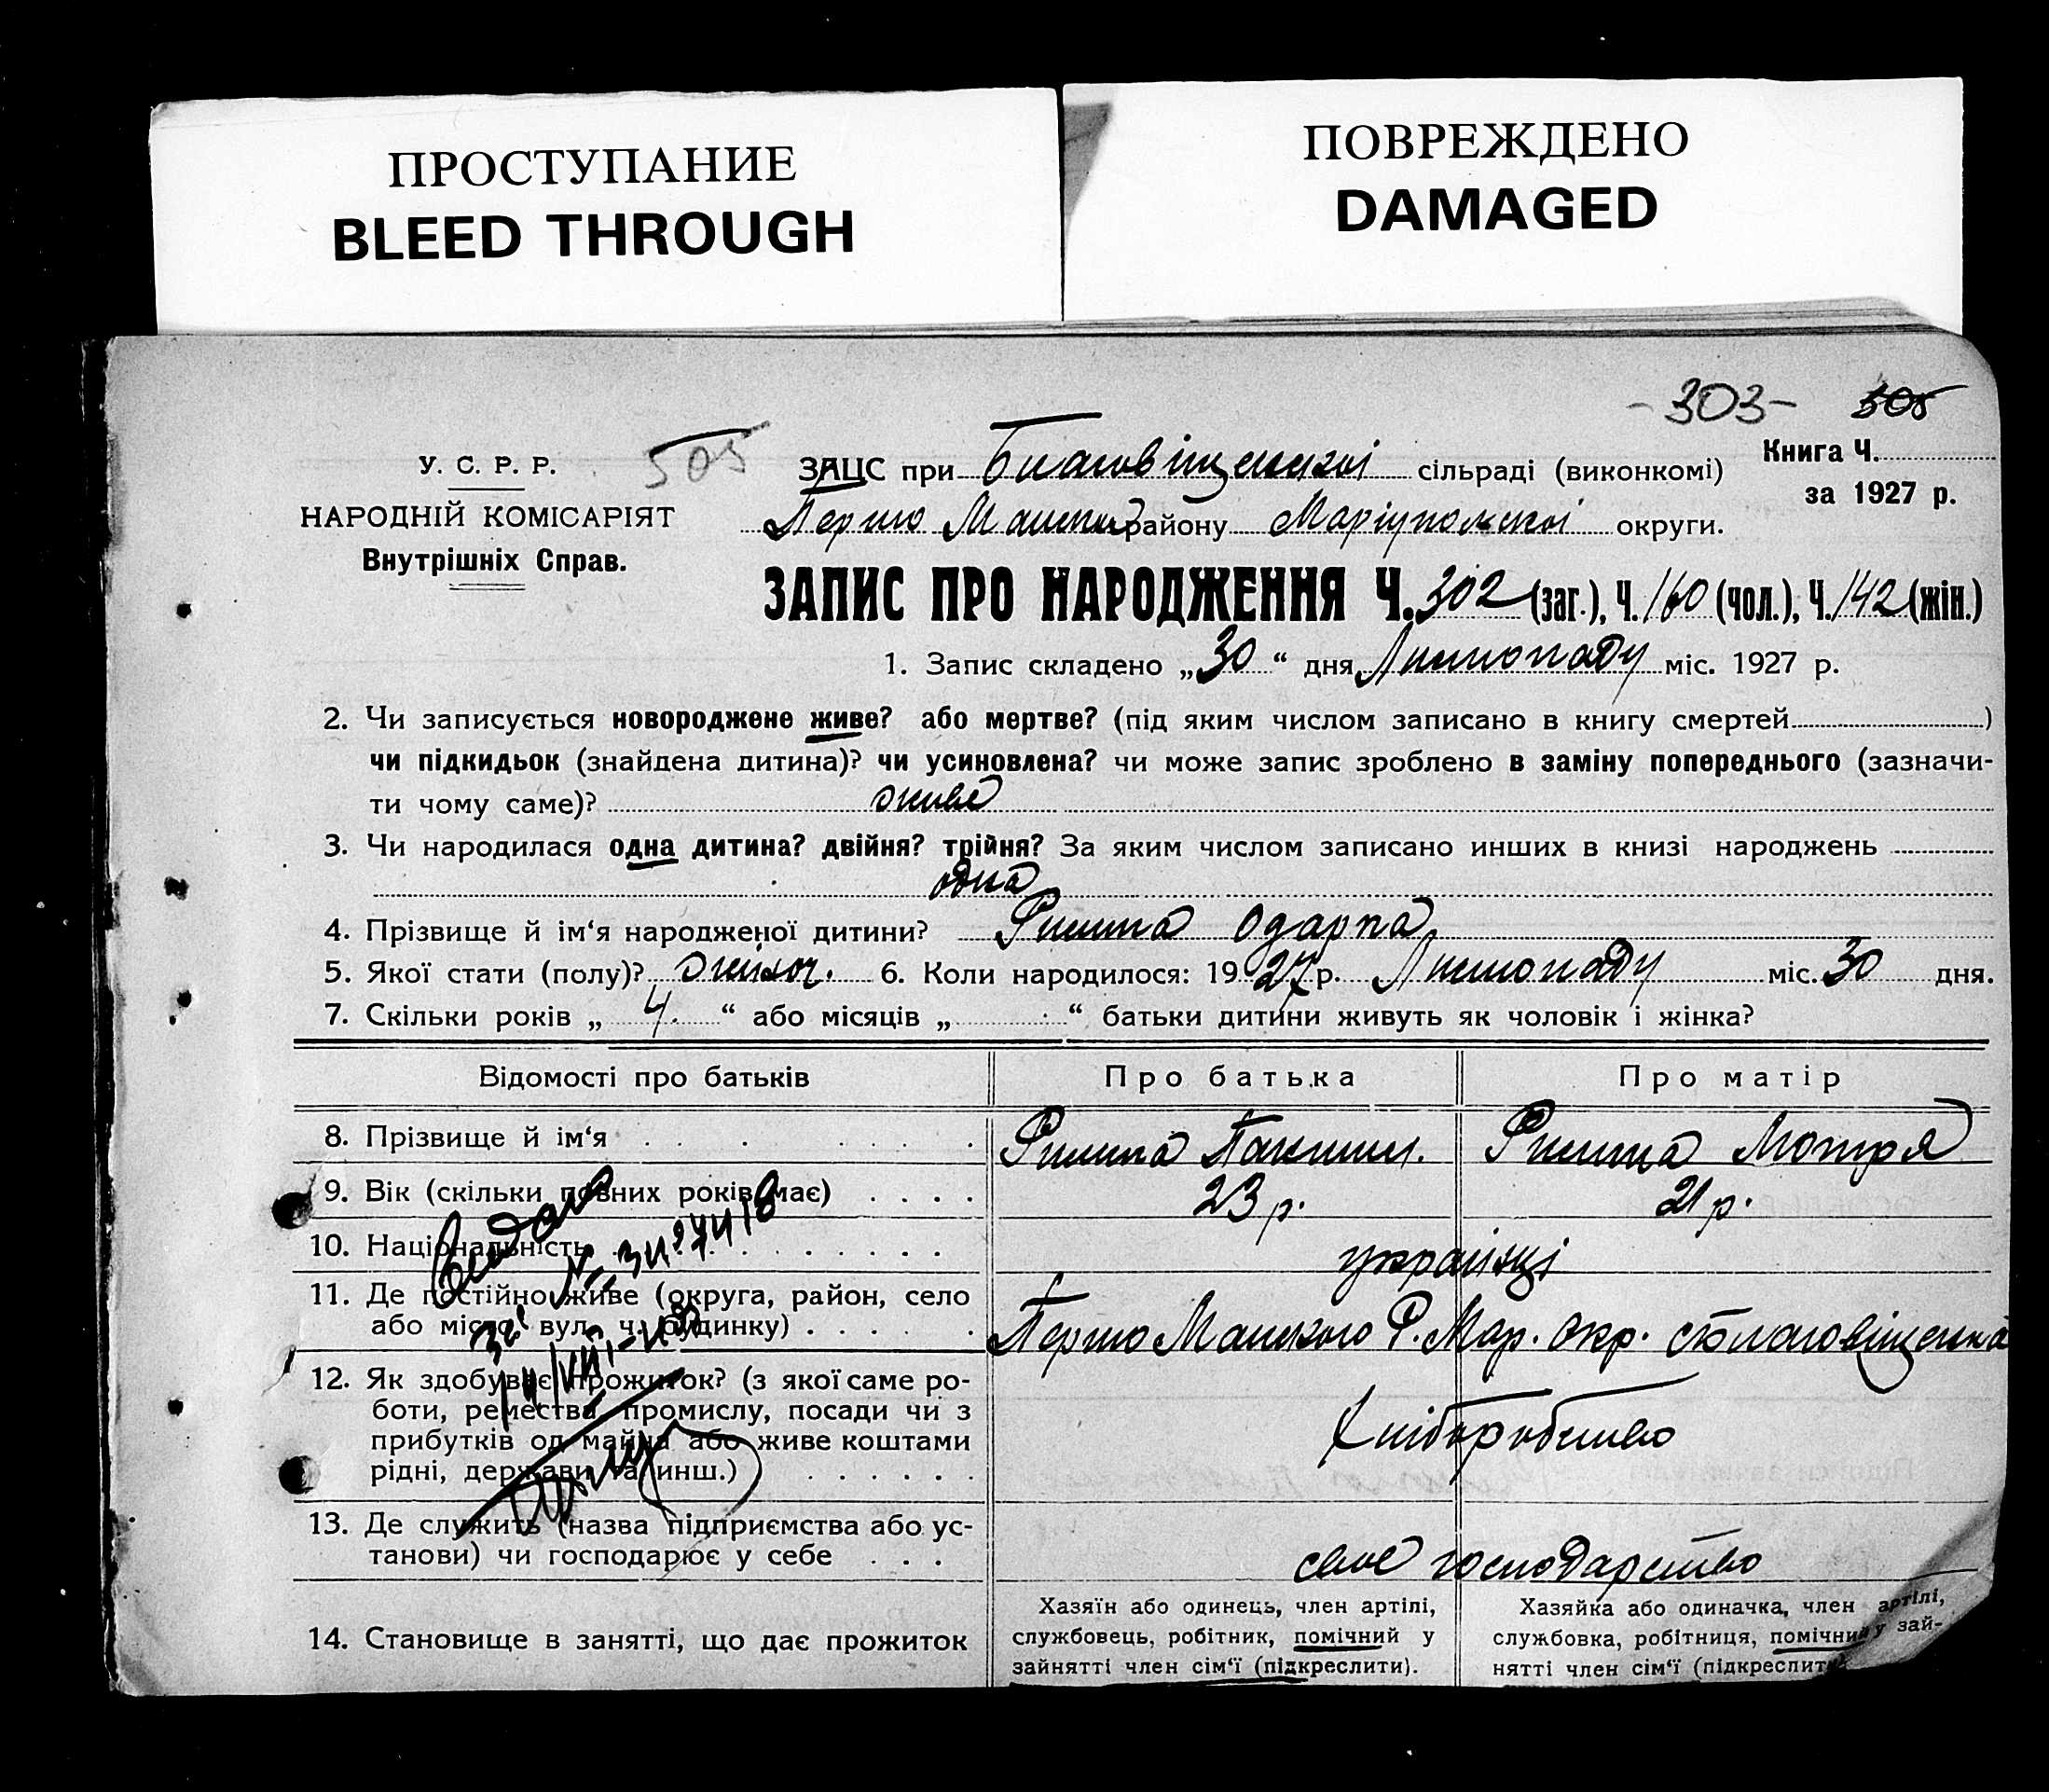 ПРОСТУПАНИЕ
BLEED THROUGH
ПОВРЕЖДЕНО
DAMAGED
-303- 505
У. С. Р. Р. 505
НАРОДНІЙ КОМІСАРІЯТ
Внутрішніх Справ.
ЗАЦС при Благовіщенській сільраді (виконкомі)
Книга Ч.
за 1927 р.
Першо Майськ району Маріупольської округи.
ЗАПИС ПРО НАРОДЖЕННЯ Ч. 302 (заг.), Ч. 160 (чол.), Ч. 142 (жін.)
1. Запис складено „30“ дня Листопаду міс. 1927 р.
2. Чи записується новороджене живе? або мертве? (під яким числом записано в книгу смертей )
чи підкидьок (знайдена дитина)? чи усиновлена? чи може запис зроблено в заміну попереднього (зазначи-
ти чому саме)? живе
3. Чи народилася одна дитина? двійня? трійня? За яким числом записано инших в книзі народжень
одна
4. Прізвище й ім‘я народженої дитини? Одарка
5. Якої стати (полу)? жіноч. 6. Коли народилося: 1927 р. Листопаду міс. 30 дня.
7. Скільки років „ 4. “ або місяців „ “ батьки дитини живуть як чоловік і жінка?
Відомості про батьків Про батька Про матір
8. Прізвище й ім‘я Мотря
9. Вік (скільки повних років має) 23 р. 21 р.
10. Національність українці
11. Де постійно живе (округа, район, село
або місто, вул., ч. будинку) Першо Майського Р. Мар. окр. с Благовіщенка
12. Як здобуває прожиток? (з якої саме ро-
боти, ремества, промислу, посади чи з
прибутків од майна або живе коштами
рідні, держави та инш.) Хліборобство
13. Де служить (назва підприємства або ус-
танови) чи господарює у себе своє господарство
14. Становище в занятті, що дає прожиток
Хазяїн або одинець, член артілі,
службовець, робітник, помічний у
зайнятті член сім‘ї (підкреслити).
Хазяйка або одиначка, член артілі,
службовка, робітниця, помічний у зай-
нятті член сім‘ї (підкреслити